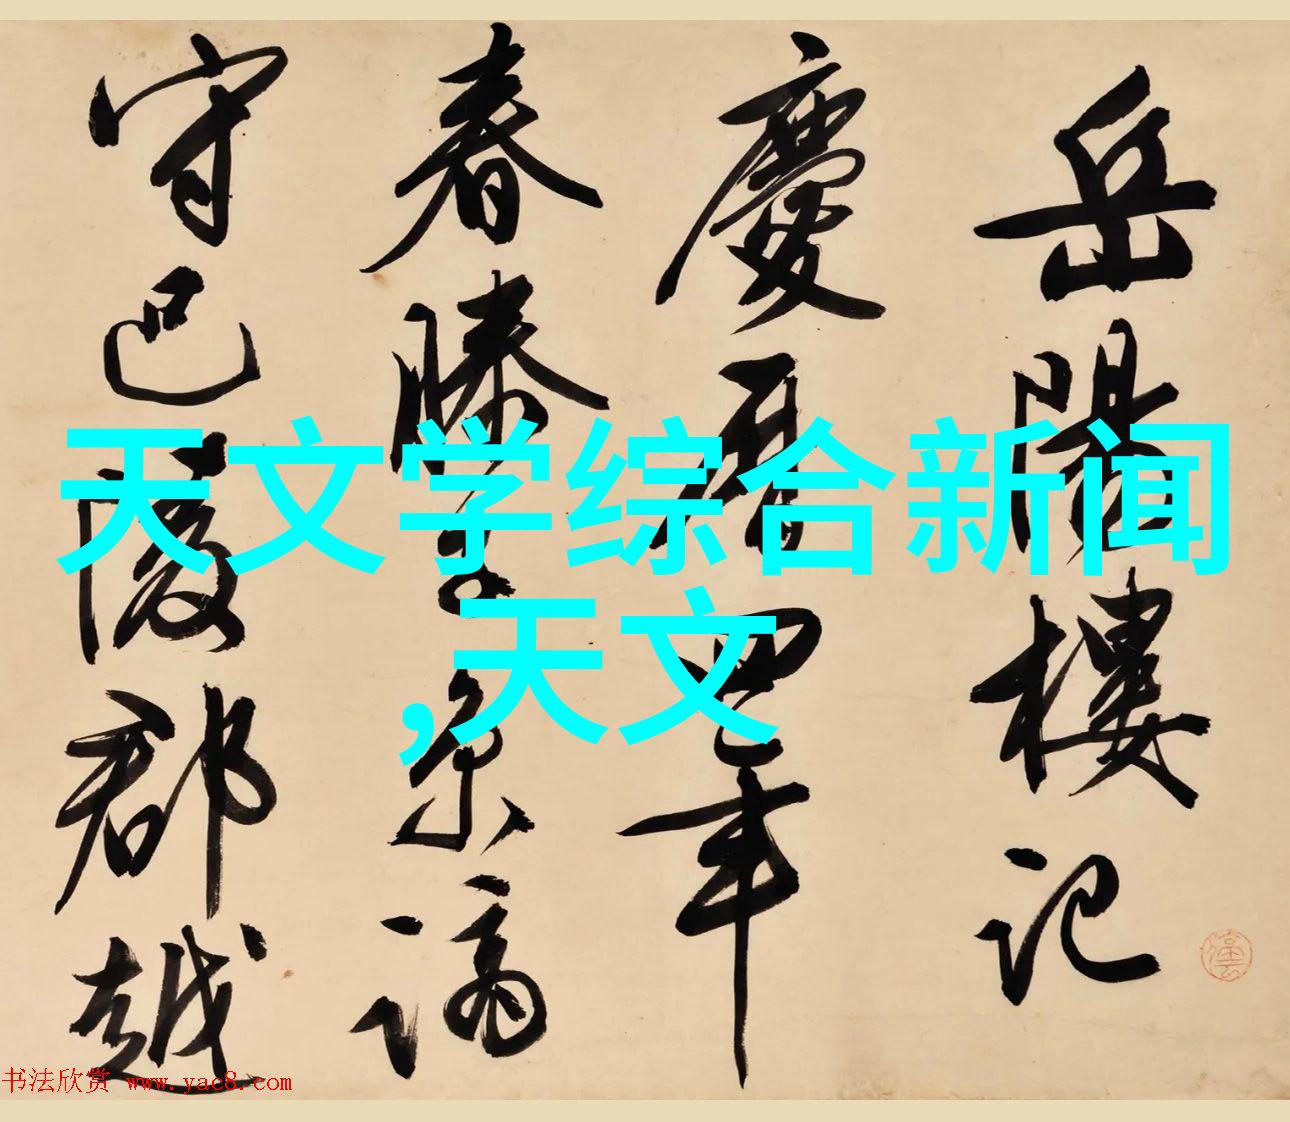 岳陽樓記
慶曆四年
春滕子京謫
守巴陵郡越
天文学综合新闻
,天文
书法欣赏 www.yac8.com